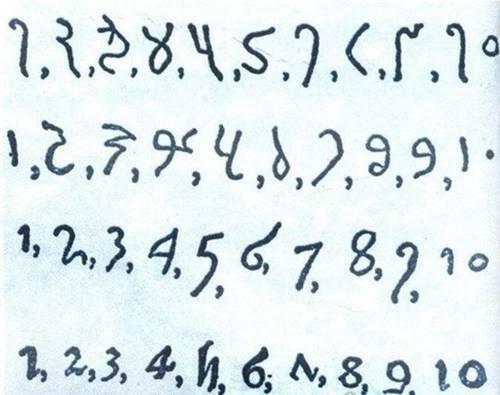 1, 2, 3, 4, 5, 6, 7, 8, 9, 10
1, 2, 3, 4, 5, 6, 7, 8, 9, 10
1, 2, 3, 4, 5, 6, 7, 8, 9, 10
1, 2, 3, 4, 5, 6, 7, 8, 9, 10